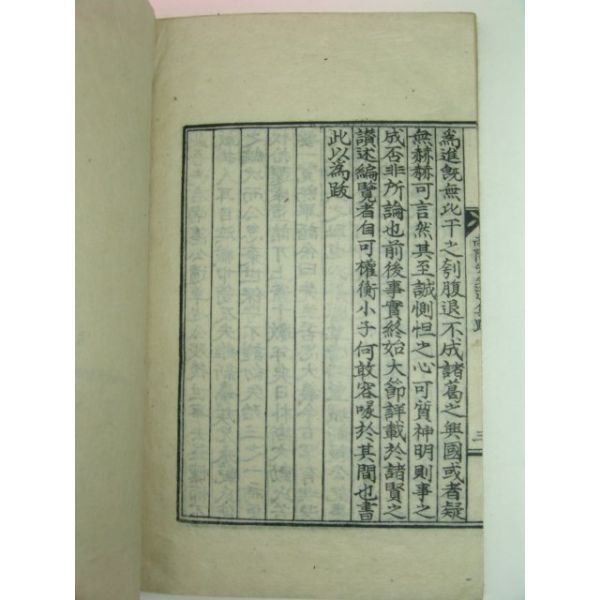 爲進旣無比干之刳腹退不成諸葛之興國或者疑
無赫赫可言然其至誠惻怛之心可質神明則事之
成否非所論也前後事實終始大節詳載於諸賢之
讃述編覽者自可權衡小子何敢容喙於其間也書
此以爲跋
三